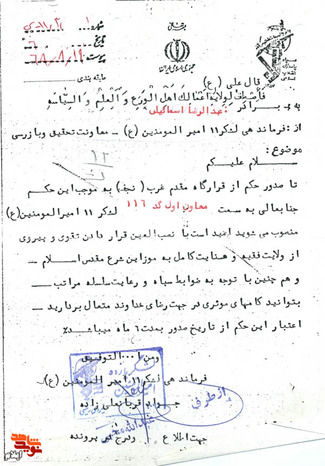 بسمه تعالی
جمهوری اسلامی ایران
طبقه بندی
قال علی (ع)
فاصطف لولایة اعمالک اهل الورع و العلم و السیاسه
به : برادر : عبدالرضا اسماعیلی
از : فرماندهی لشکر ۱۱ امیر المومنین (ع) - معاونت تحقیق و بازرسی
موضوع :
سلام علیکم
تا صدور حکم از قرارگاه مقدم غرب ( نجف ) به موجب این حکم
جنابعالی به سمت معاون اول کد ۱۱۶ لشکر ۱۱ امیر المومنین (ع)
منصوب می شوید امید است با نصب العین قرار دادن تقوی و پیروی
از ولایت فقیه و عنایت کامل به موازین شرع مقدس اسلام
و هم چنین با توجه به ضوابط سپاه و رعایت سلسله مراتب
بتوانید گامهای موثری در جهت رضای خداوند متعال بردارید
اعتبار این حکم از تاریخ صدور بمدت ۶ ماه میباشد
ومن ا... التوفیق
فرماندهی لشکر ۱۱ امیر المومنین (ع)
جهت اطلاع و درج در پرونده
نوید شاهد